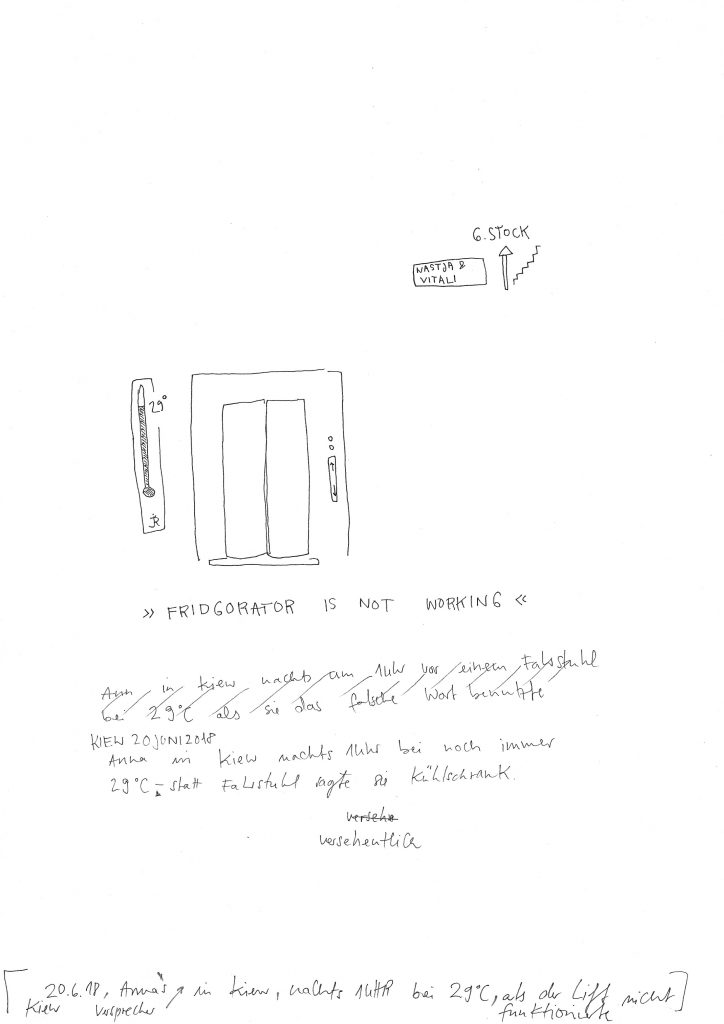 6.STOCK
NASTJA &
VITALI
29°
JR
» FRIDGORATOR IS NOT WORKING «
Ann in Kiew nachts um 1Uhr vor einem Fahrstuhl
bei 29°C als sie das falsche Wort benutzte
KIEW 20 JUNI 2018
Anna in Kiew nachts 1Uhr bei noch immer
29°C – statt Fahrstuhl sagte sie Kühlschrank.
versehe
versehentlich
20.6.18, Anna's in Kiew, nachts 1UHR bei 29°C, als der Lift nicht
Kiew Versprecher funktionierte